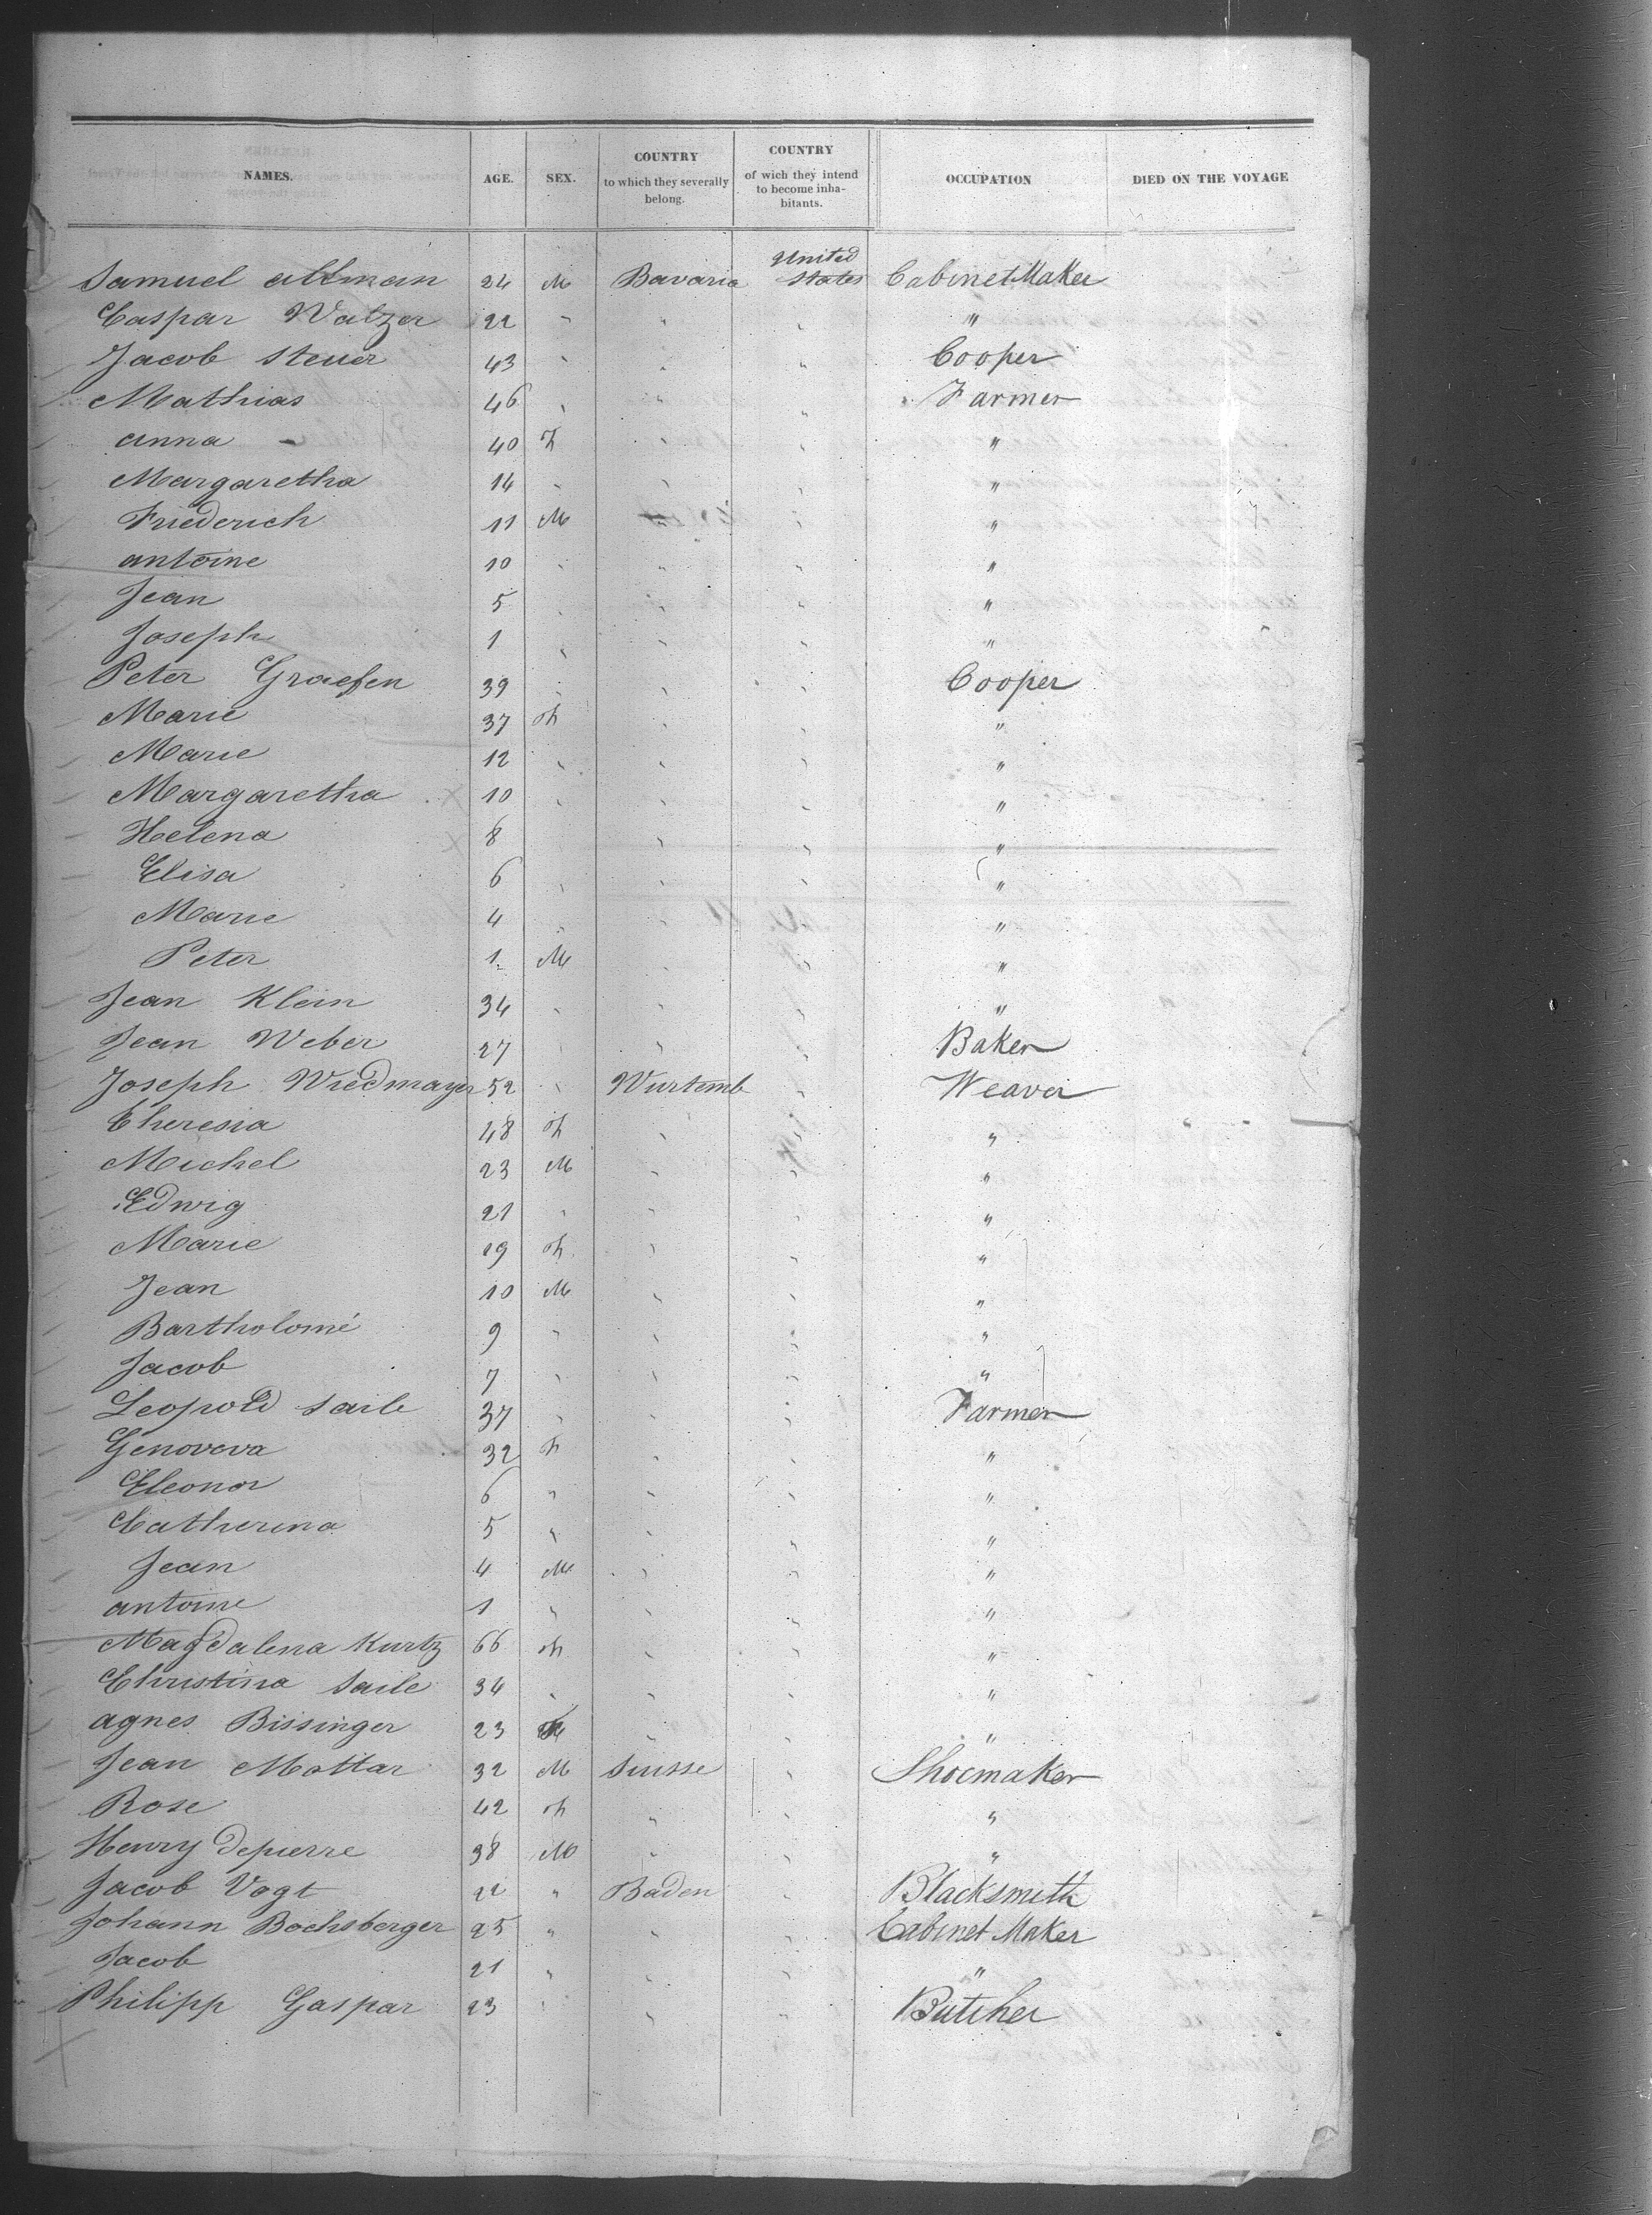 NAMES. AGE. SEX. COUNTRY to which they severally belong. COUNTRY of wich they intend to become inhabitants. OCCUPATION DIED ON THE VOYAGE
Samuel allman 24 M Bavaria United States Cabinet Maker
Caspar Walzer 22 " " " "
Jacob Steuer 43 " " " Cooper
Mathias 46 " " " Farmer
anna - 40 F " " "
Margaretha 14 " " " "
Friederich 11 M " " "
antoine 10 " " " "
Jean 5 " " " "
Joseph 1 " " " "
Peter Graefen 39 " " " Cooper
Marie 37 F " " "
Marie 12 " " " "
Margaretha 10 " " " "
Helena 8 " " "
Elisa 6 " " " "
Marie 4 " " " "
Peter 1 M " " "
Jean Klein 34 " " " "
Jean Weber 27 " " " Baker
Joseph Wiedmayer 52 " Wurtemb " Weaver
Theresia 48 F " " "
Michel 23 M " " "
Edwig 21 " " " "
Marie 19 F " " "
Jean 10 M " " "
Bartholomé 9 " " " "
Jacob 7 " " " "
Leopold Saile 37 " " " Farmer
Genoveva 32 F " " "
Eleonor 6 " " " "
Catherina 5 " " " "
Jean 4 M " " "
antoine 1 " " " "
Magdalena Kurtz 66 F " " "
Christina Saile 34 " " " "
agnes Bissinger 23 " " "
Jean Mottar 32 M Suisse " Shoemaker
Rose 42 F " " "
Henry Depierre 38 M " " "
Jacob Vogt 22 " Baden " Blacksmith
Johann Bochsberger 25 " " " Cabinet Maker
Jacob 21 " " " "
Philipp Gaspar 23 " " " Butcher